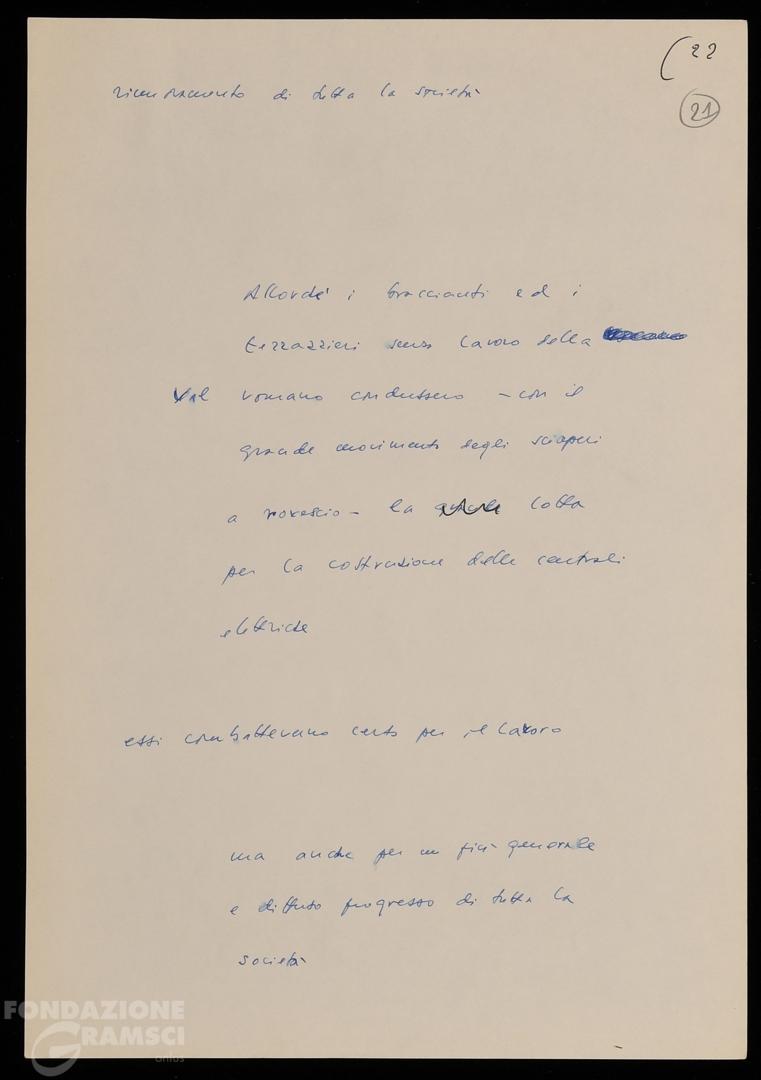 (22
21
rinnovamento di tutta la società
Allorché i braccianti ed i
terrazzieri senza lavoro della
Val vomano condussero – con il
grande movimento degli scioperi
a rovescio – la lotta
per la costruzione delle centrali
elettriche
essi combattevano certo per il lavoro
ma anche per un più generale
e diffuso progresso di tutta la
società
FONDAZIONE
GRAMSCI
onlus